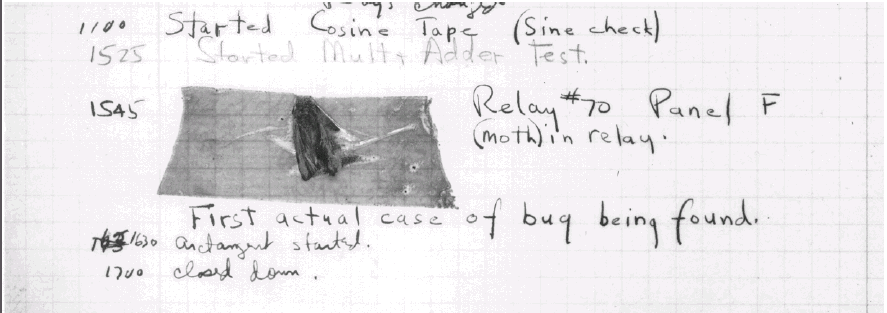 1100 Started Cosine Tape (Sine check)
1525 Started Mult+ Adder Test.
1545 Relay #70 Panel F
(moth) in relay.
First actual case of bug being found.
1630 arctangent started.
1700 closed down.